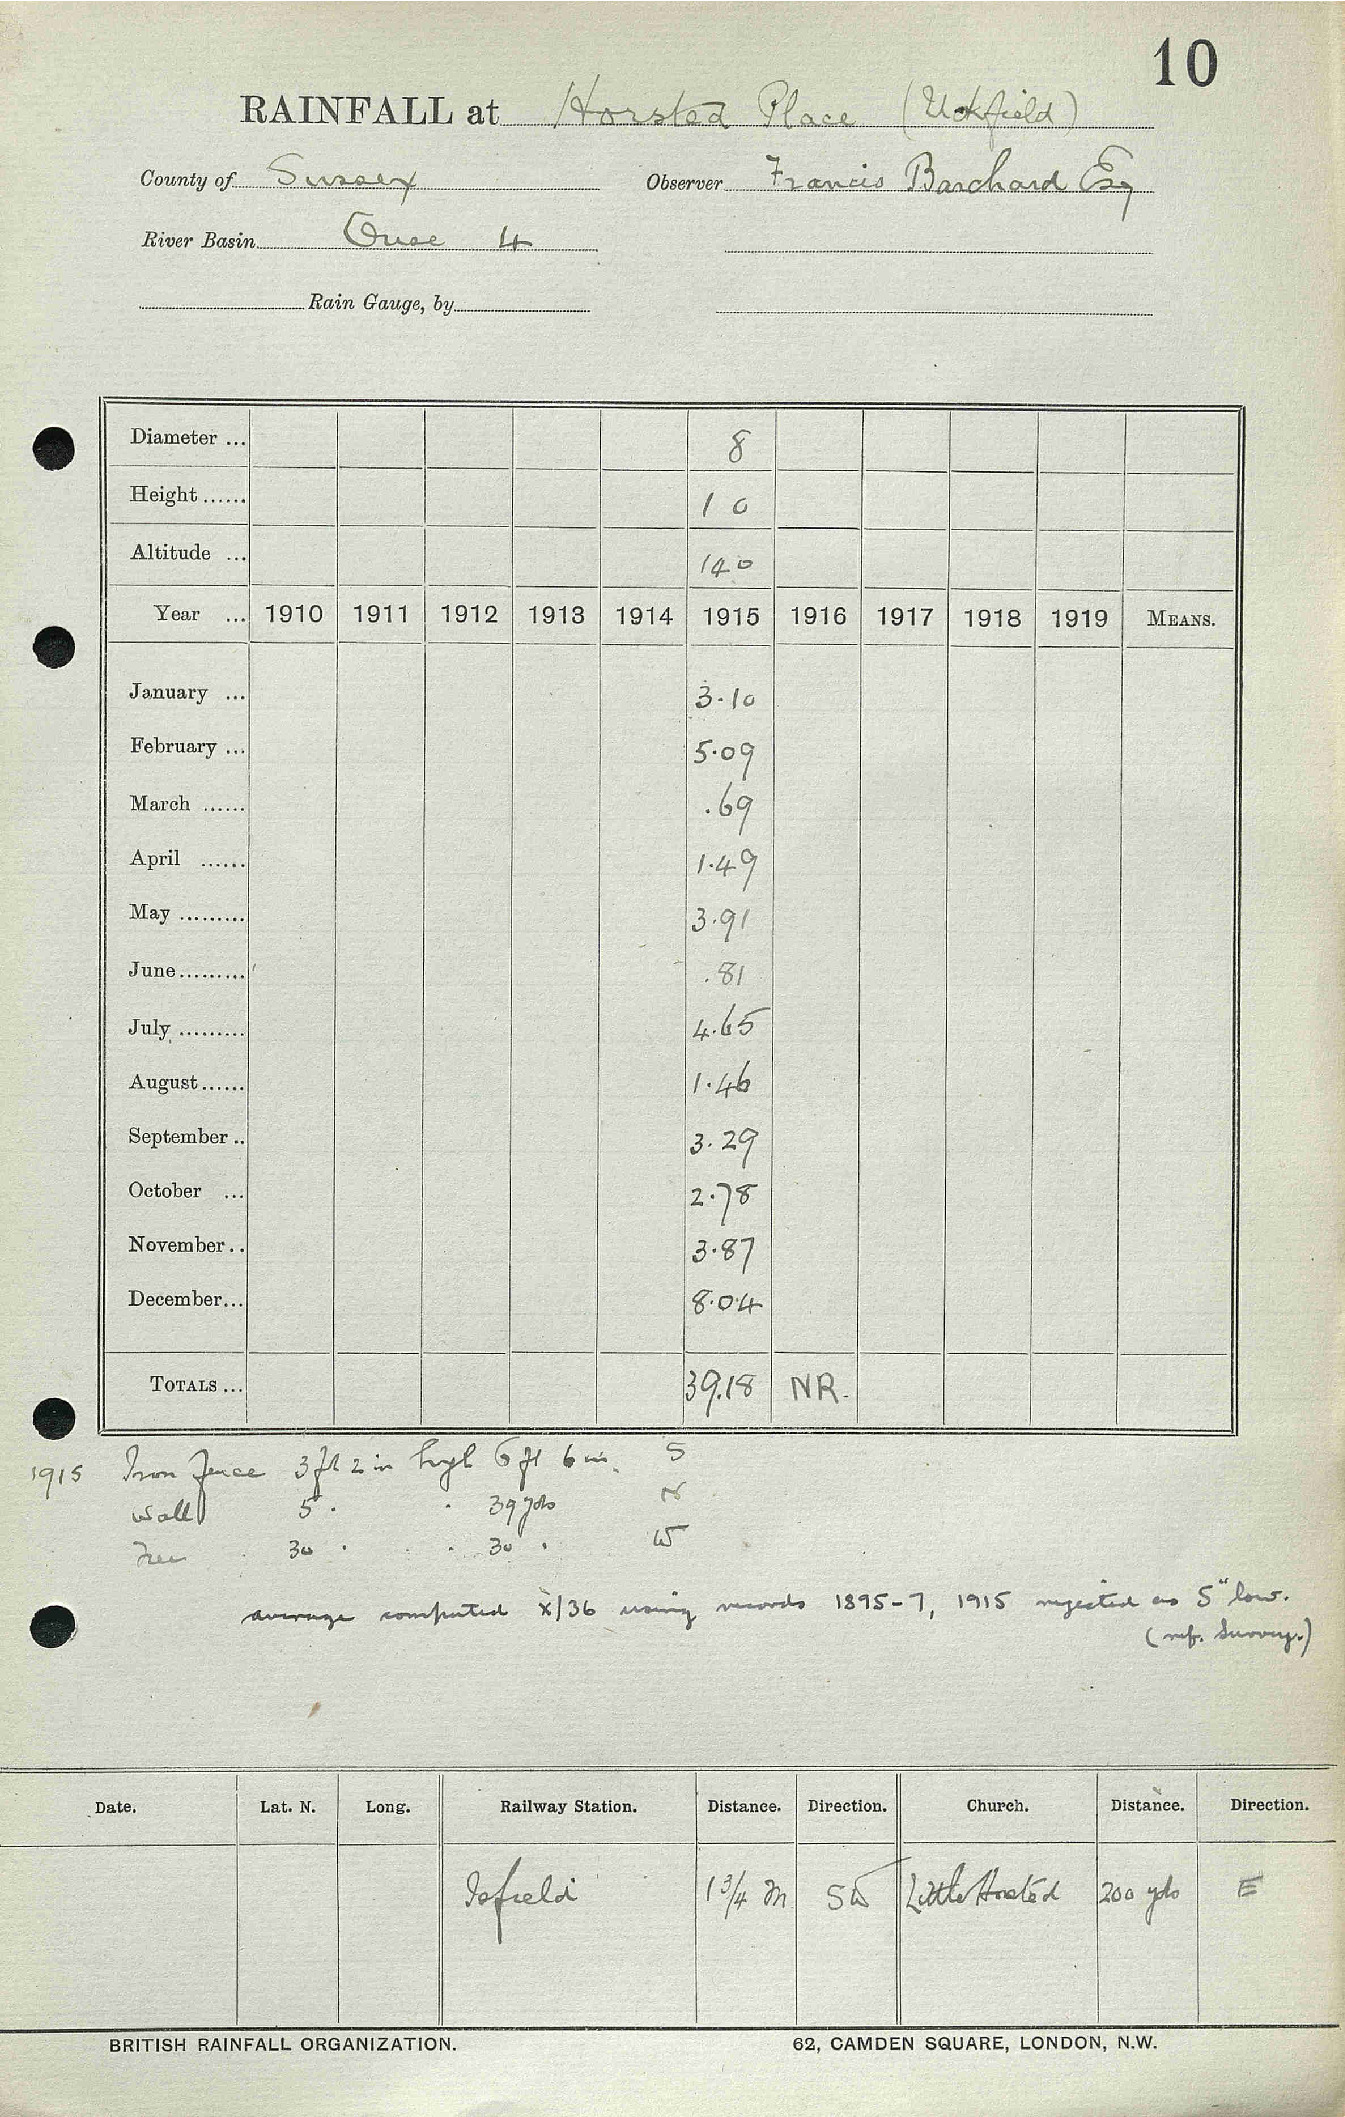 10
RAINFALL at Horsted Place (Uckfield)
County of Sussex Observer Francis Barchard Esq
River Basin Ouse 4
Rain Gauge, by
Diameter ... 8
Height ...... 1 0
Altitude ... 140
Year ... 1910 1911 1912 1913 1914 1915 1916 1917 1918 1919 MEANS.
January ... 3.10
February ... 5.09
March ...... .69
April ...... 1.49
May ......... 3.91
June......... .81
July ......... 4.65
August...... 1.46
September .. 3.29
October ... 2.78
November.. 3.87
December... 8.04
TOTALS ... 39.18 NR.
1915 Iron fence 3 ft 2 in high 6 ft 6 in. S
Wall 5 " " 39 yds N
Tree 30 " " 30 " W
average computed X/36 using records 1895-7, 1915 rejected as 5" low.
(ref. Survey.)
Date. Lat. N. Long. Railway Station. Distance. Direction. Church. Distance. Direction.
Isfield 1 3/4 m SW Little Horsted 200 yds E
BRITISH RAINFALL ORGANIZATION. 62, CAMDEN SQUARE, LONDON, N.W.